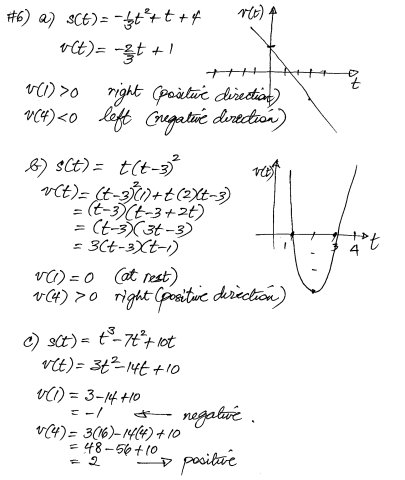 #6) a) s(t) = -1/3 t² + t + 4
v(t) = -2/3 t + 1
v(t)
t
v(1) > 0 right (positive direction)
v(4) < 0 left (negative direction)
b) s(t) = t(t-3)²
v(t) = (t-3)²(1) + t(2)(t-3)
= (t-3)(t-3+2t)
= (t-3)(3t-3)
= 3(t-3)(t-1)
v(t)
1 3 4 t
v(1) = 0 (at rest)
v(4) > 0 right (positive direction)
c) s(t) = t³ - 7t² + 10t
v(t) = 3t² - 14t + 10
v(1) = 3 - 14 + 10
= -1 ← negative.
v(4) = 3(16) - 14(4) + 10
= 48 - 56 + 10
= 2 → positive